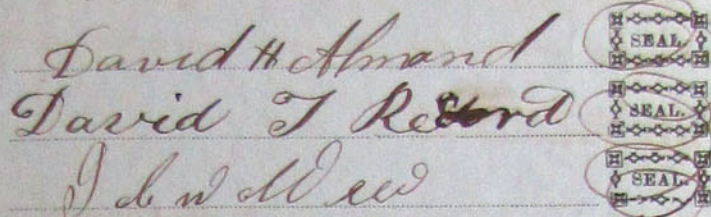 David H Almand SEAL.
David T Record SEAL.
SEAL.